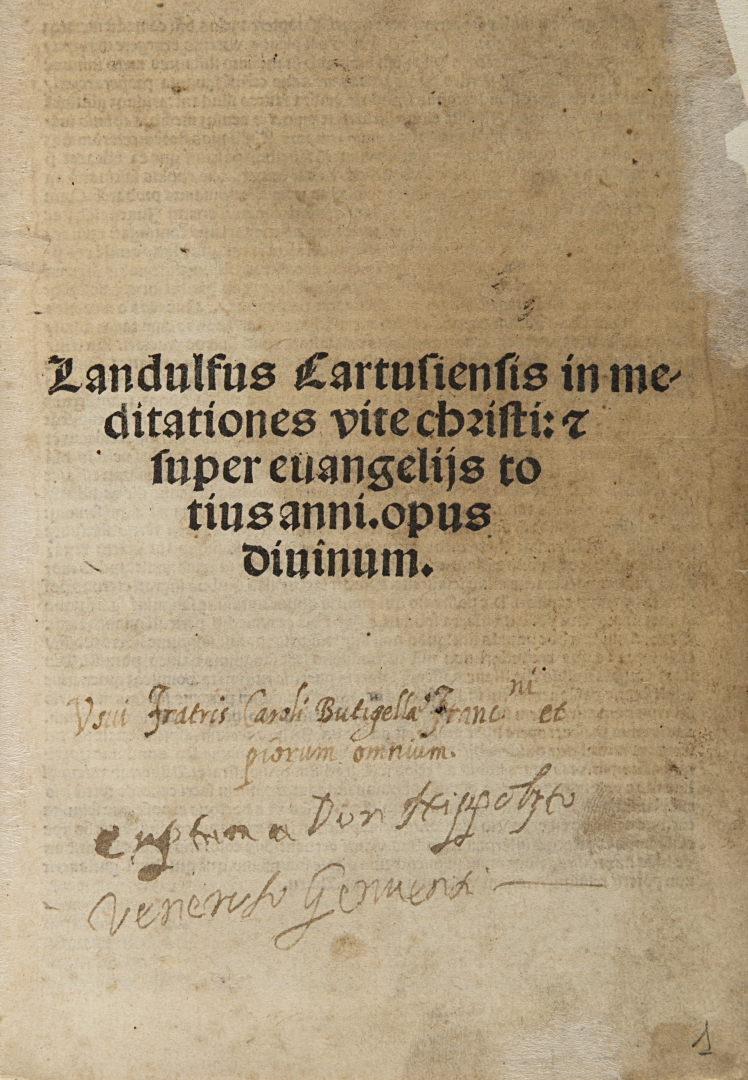 Landulfus Cartusiensis in me-
ditationes vite christi: ⁊
super euangelijs to
tius anni. opus
diuinum.
Usui Fratris Caroli Butigellę Francni et
piorum omnium.
emptum a Don Hippolyto
Veneroso Genuensi
1